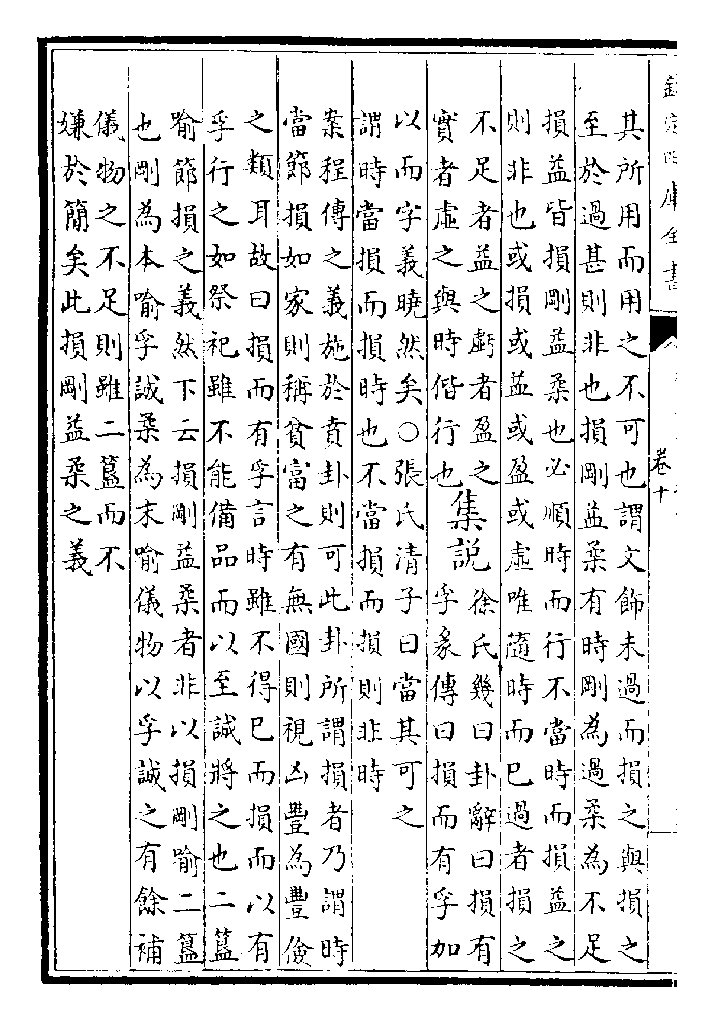 欽定四庫全書
卷十
其所用而用之不可也謂文飾未過而損之與損之
至於過甚則非也損剛益柔有時剛為過柔為不足
損益皆損剛益柔也必順時而行不當時而損益之
則非也或損或益或盈或虛唯隨時而已過者損之
不足者益之虧者盈之
實者虛之與時偕行也
集說
徐氏幾曰卦辭曰損有
孚彖傳曰損而有孚加
以而字義曉然矣○張氏清子曰當其可之
謂時當損而損時也不當損而損則非時
案程傳之義施於賁卦則可此卦所謂損者乃謂時
當節損如家則稱貧富之有無國則視凶豐為豐儉
之類耳故曰損而有孚言時雖不得已而損而以有
孚行之如祭祀雖不能備品而以至誠將之也二簋
喻節損之義然下云損剛益柔者非以損剛喻二簋
也剛為本喻孚誠柔為末喻儀物以孚誠之有餘補
儀物之不足則雖二簋而不
嫌於簡矣此損剛益柔之義